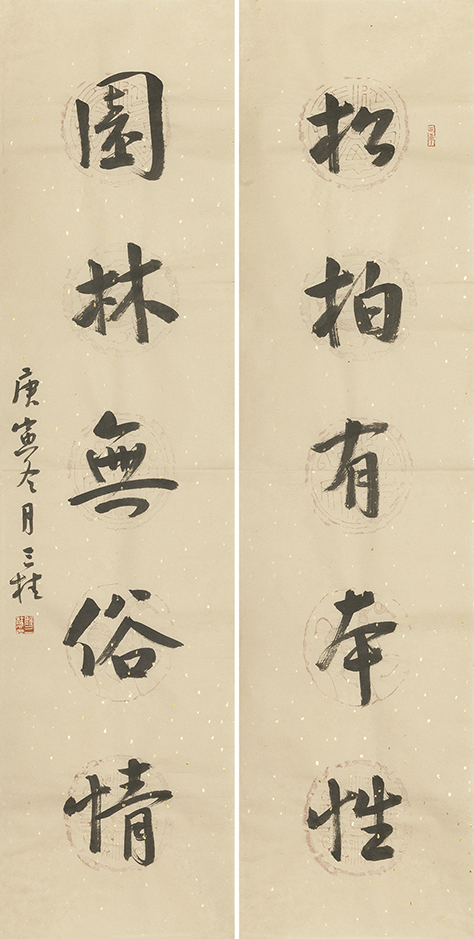 松柏有本性
園林無俗情
庚寅冬月三桂